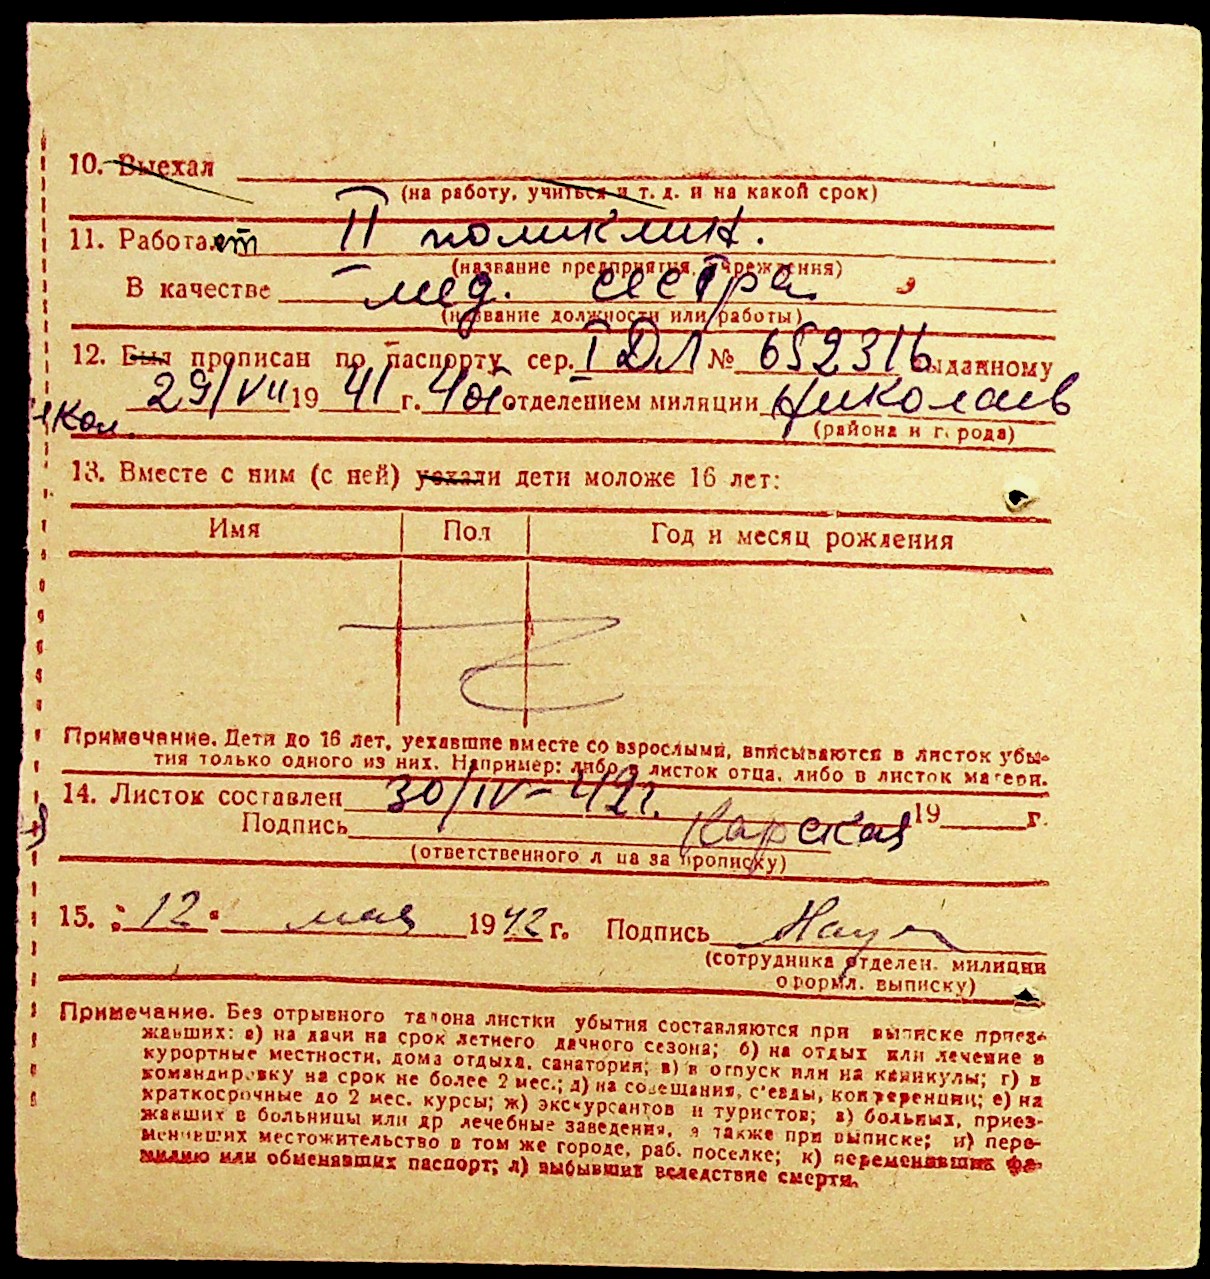 10. Выехал
(на работу, учиться и т. д. и на какой срок)
11. Работает II поликлин.
(название предприятия, учреждения)
В качестве мед. сестра
(название должности или работы)
12. Был прописан по паспорту сер. I ДЛ № 652316 выданному
29/VII 1941 г. 4ое отделением милиции Николаев
(района и города)
13. Вместе с ним (с ней) уехали дети моложе 16 лет:
Имя Пол Год и месяц рождения
Примечание. Дети до 16 лет, уехавшие вместе со взрослыми, вписываются в листок убы-
тия только одного из них. Например: либо в листок отца, либо в листок матери.
14. Листок составлен 30/IV-42г. 19 г.
Подпись Карская
(ответственного лица за прописку)
15. "12" мая 1942 г. Подпись
(сотрудника отделен. милиции
оформл. выписку)
Примечание. Без отрывного талона листки убытия составляются при выписке приез-
жавших: а) на дачи на срок летнего дачного сезона; б) на отдых или лечение в
курортные местности, дома отдыха, санатории; в) в отпуск или на каникулы; г) в
командировку на срок не более 2 мес.; д) на совещания, с'езды, конференции; е) на
краткосрочные до 2 мес. курсы; ж) экскурсантов и туристов; з) больных, приез-
жавших в больницы или др лечебные заведения, а также при выписке; и) пере-
менивших местожительство в том же городе, раб. поселке; к) переменивших фа-
милию или обменявших паспорт; л) выбывших вследствие смерти.